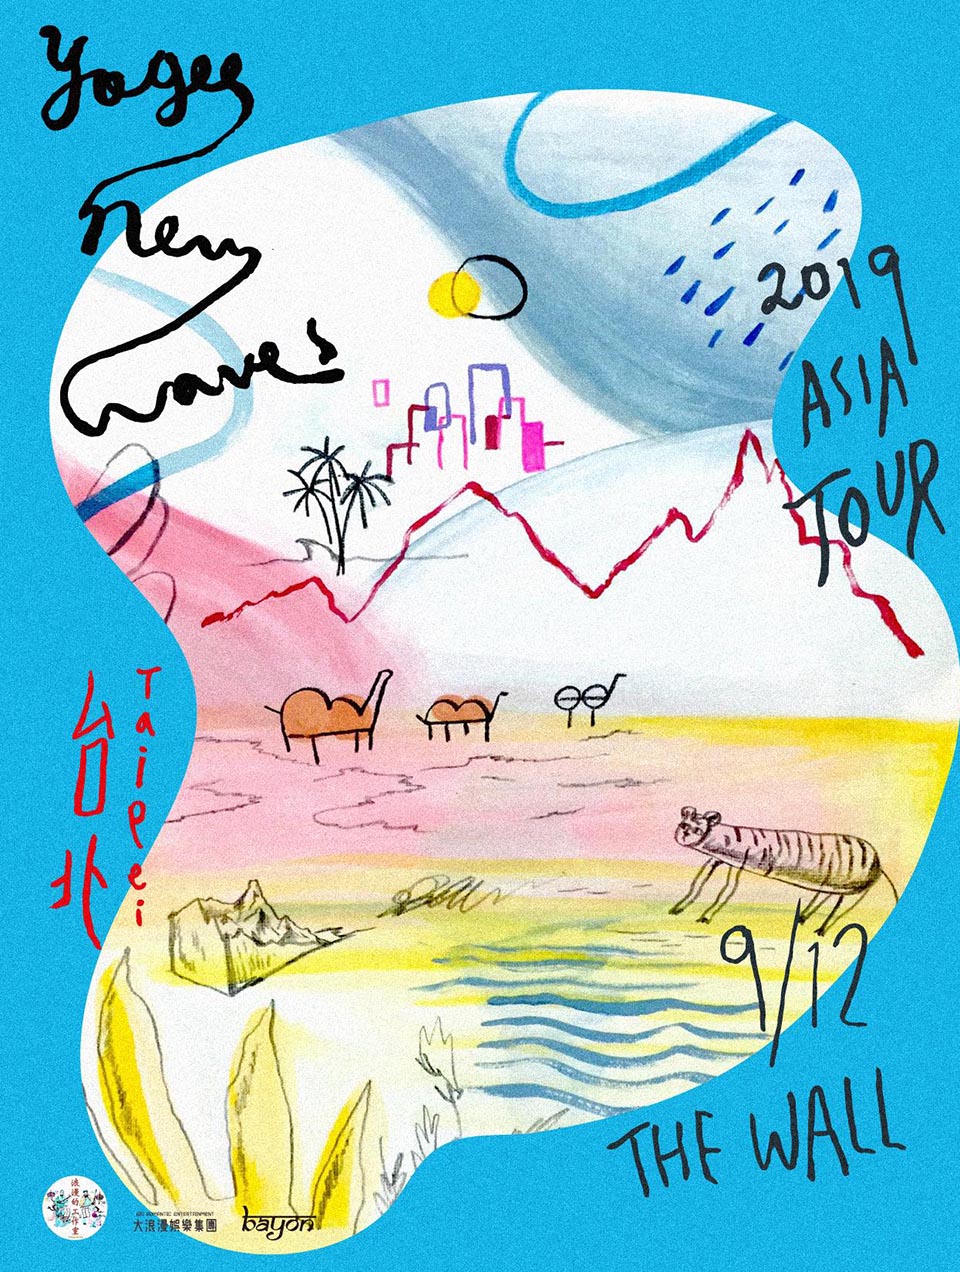 Yogee
New
Waves
2019
ASIA
TOUR
台北
Taipei
9/12
THE WALL
浪漫的工作室
BIG ROMANTIC ENTERTAINMENT
大浪漫娛樂集團
bayon